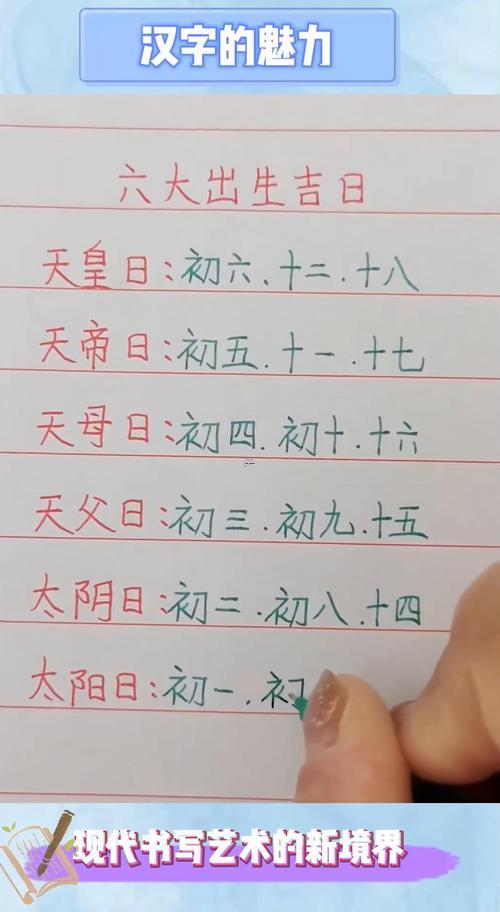 汉字的魅力
六大出生吉日
天皇日:初六.十二.十八
天帝日:初五.十一.十七
天母日:初四.初十.十六
天父日:初三.初九.十五
太阴日:初二.初八.十四
太阳日:初一.初
现代书写艺术的新境界